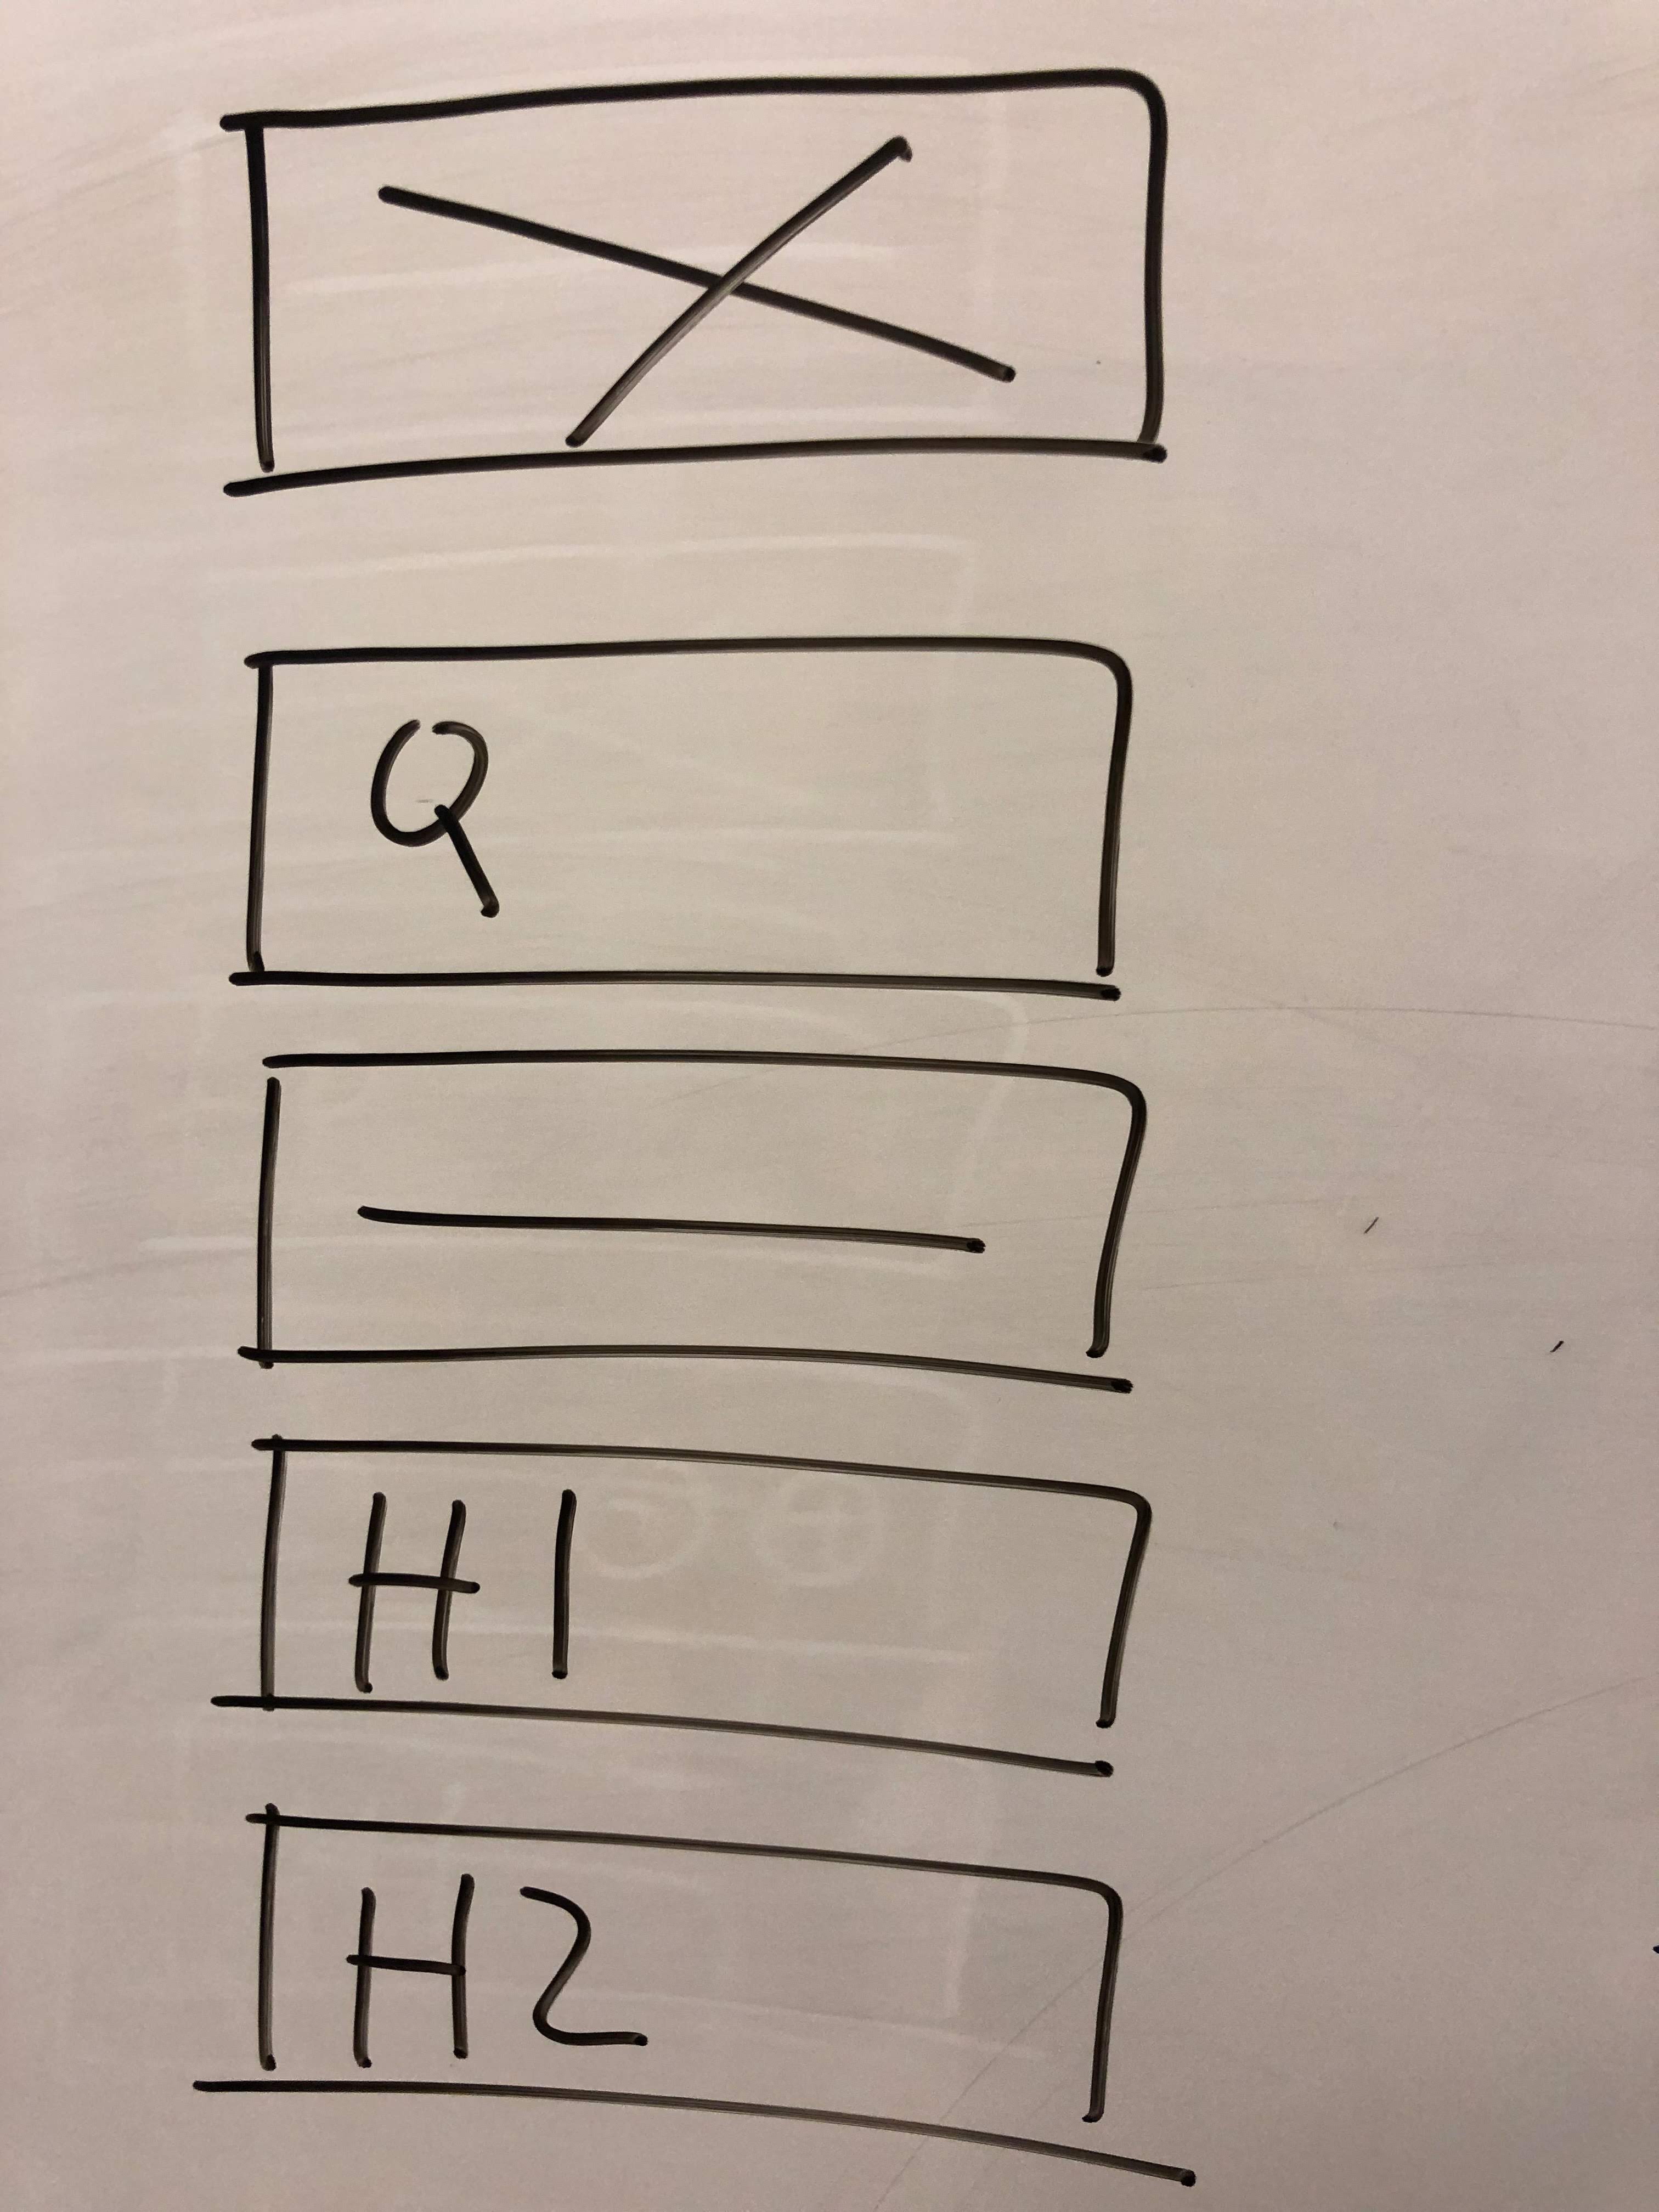 Q
H1
H2